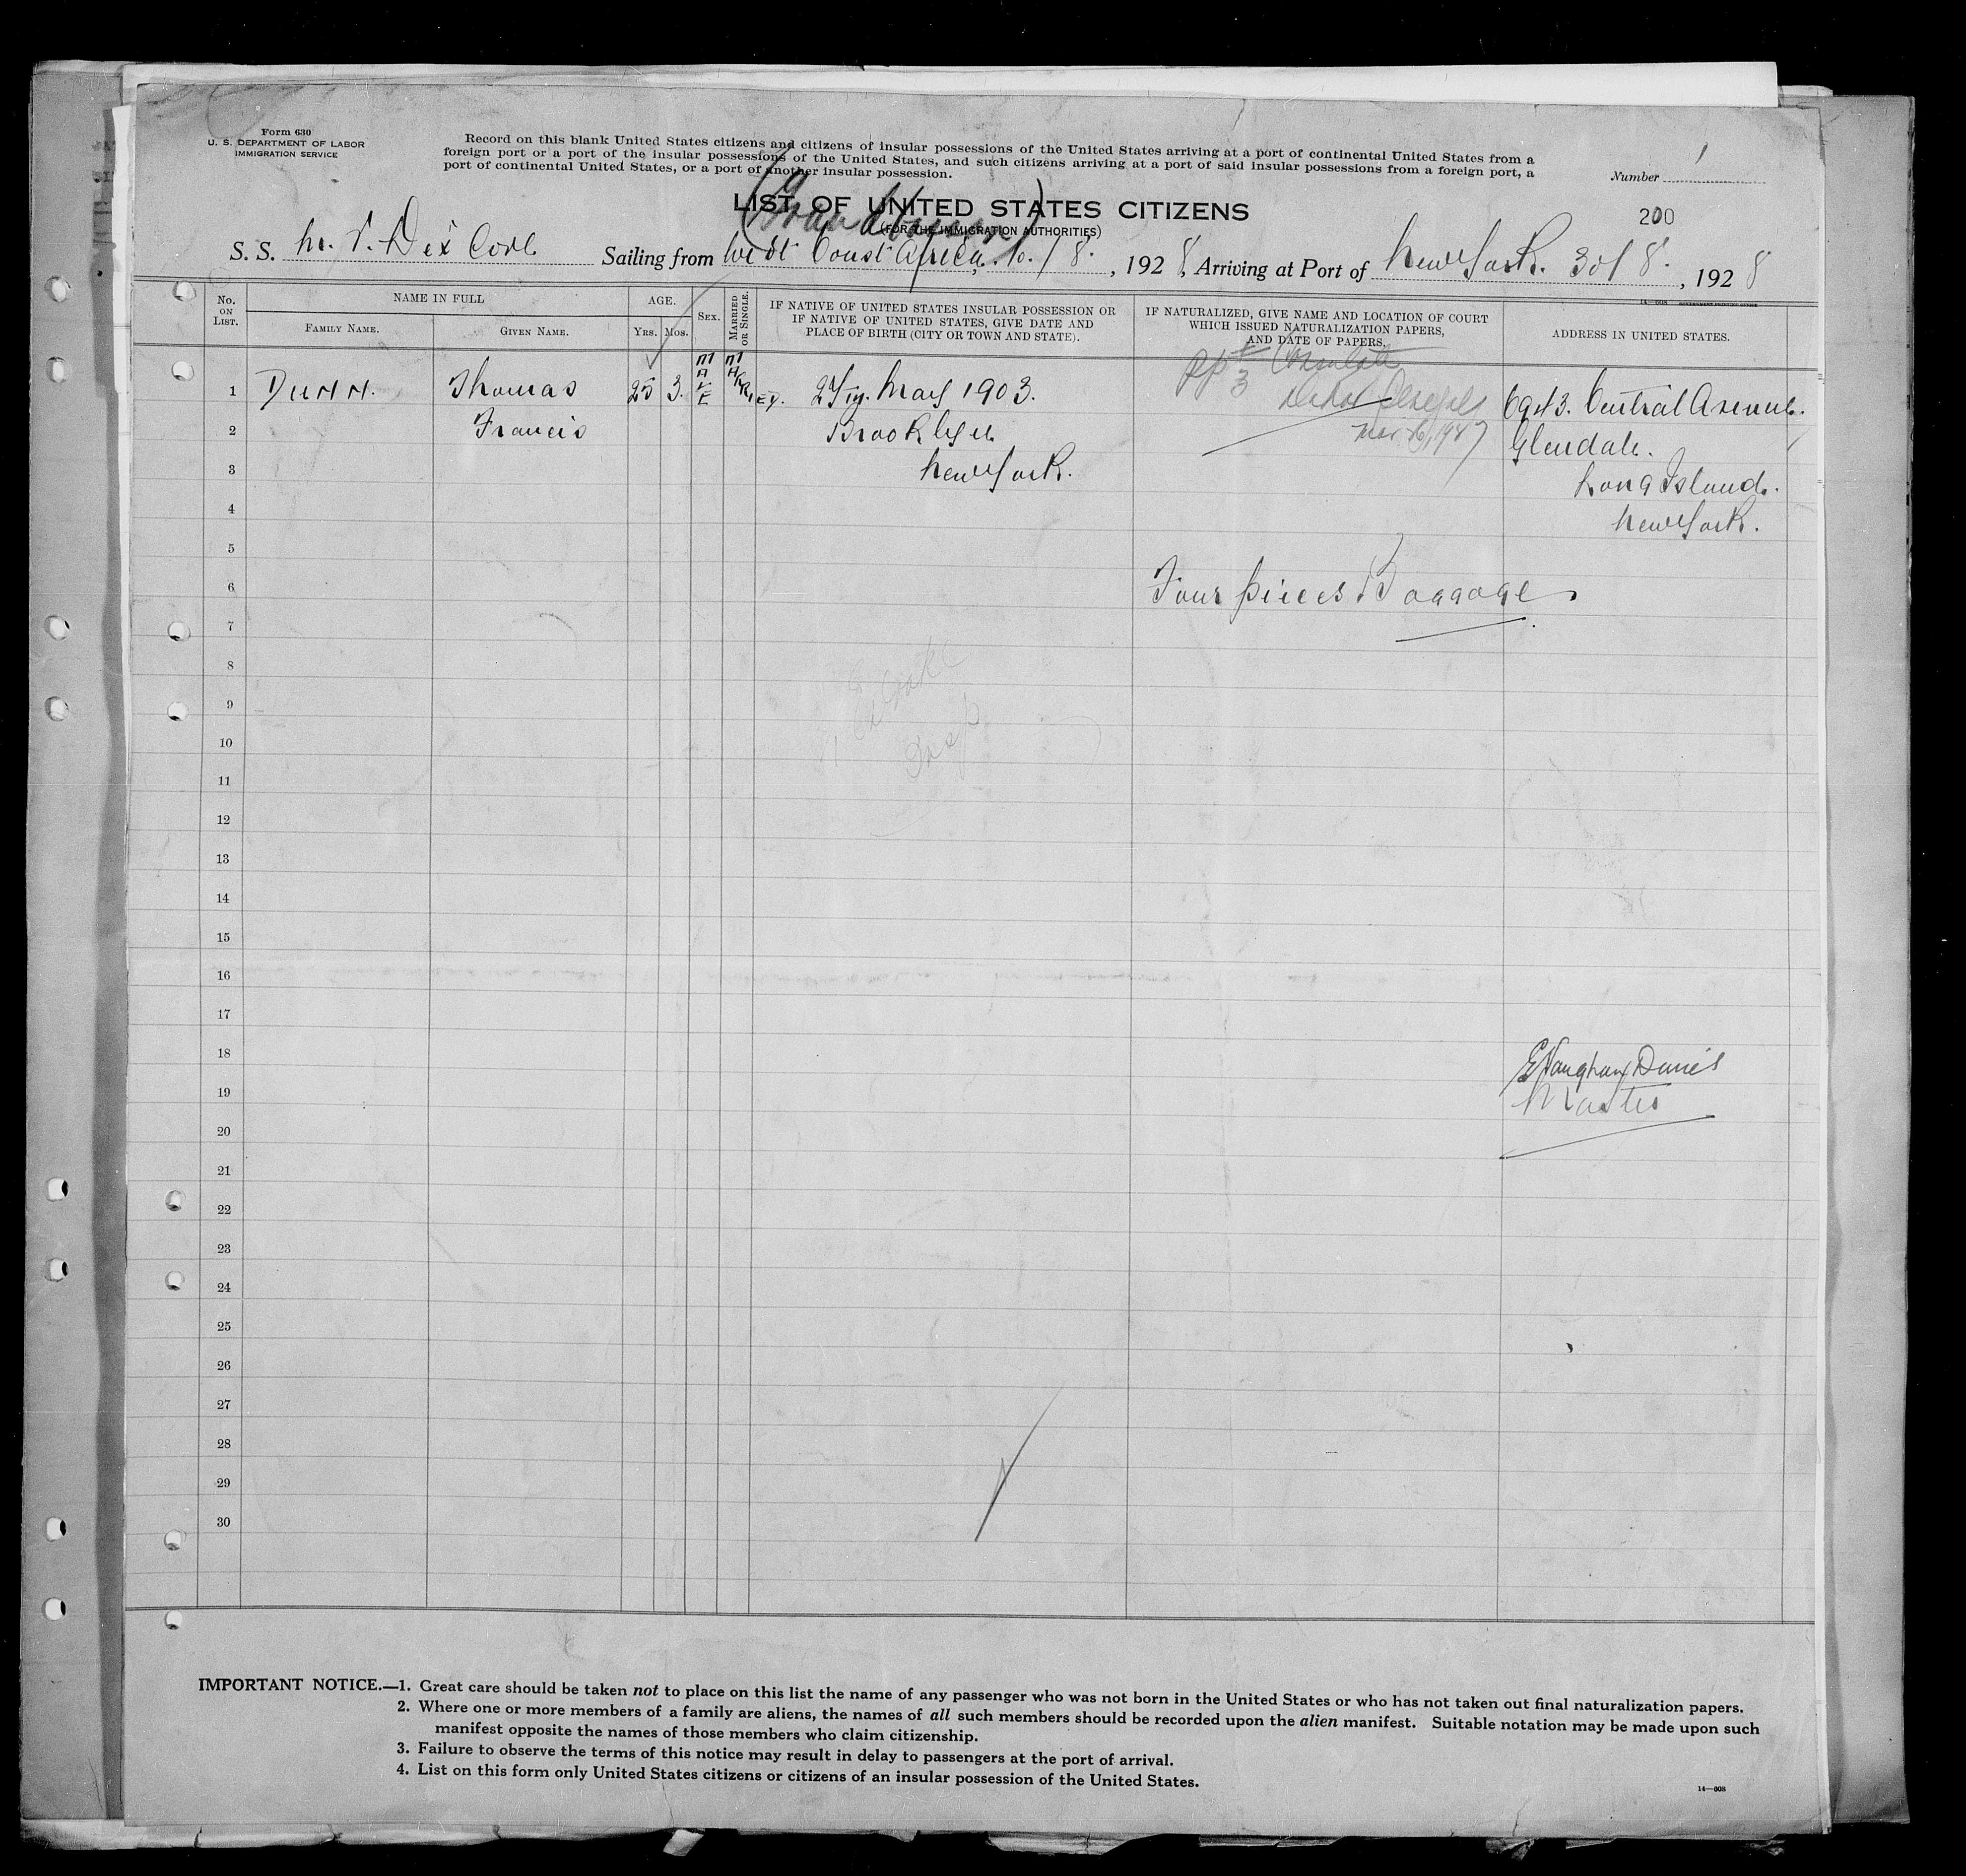 Form 630
U. S. DEPARTMENT OF LABOR
IMMIGRATION SERVICE
Record on this blank United States citizens and citizens of insular possessions of the United States arriving at a port of continental United States from a
foreign port or a port of the insular possessions of the United States, and such citizens arriving at a port of said insular possessions from a foreign port, a
port of continental United States, or a port of another insular possession.
Number 1
LIST OF UNITED STATES CITIZENS
(FOR THE IMMIGRATION AUTHORITIES)
200
S. S. M. V. Dix Cove Sailing from West Coast Africa, 10/8. , 1928, Arriving at Port of New York. 30/8. , 1928
14—608 GOVERNMENT PRINTING OFFICE
No. ON LIST.
NAME IN FULL
FAMILY NAME.
GIVEN NAME.
AGE.
YRS.
MOS.
SEX.
MARRIED OR SINGLE.
IF NATIVE OF UNITED STATES INSULAR POSSESSION OR
IF NATIVE OF UNITED STATES, GIVE DATE AND
PLACE OF BIRTH (CITY OR TOWN AND STATE).
IF NATURALIZED, GIVE NAME AND LOCATION OF COURT
WHICH ISSUED NATURALIZATION PAPERS,
AND DATE OF PAPERS.
ADDRESS IN UNITED STATES.
1 Dunn. Thomas 25 3. MALE MARRIED. 27 May 1903. 6943. Central Avenue.
2 Francis Brooklyn Glendale.
3 New York. Long Island.
4 New York.
Consulate
Dakar
5
6 Four pieces Baggage
7
8
9
10
11
12
13
14
15
16
17
18 E Vaughan Davies
19 Master
20
21
22
23
24
25
26
27
28
29
30
IMPORTANT NOTICE.—1. Great care should be taken not to place on this list the name of any passenger who was not born in the United States or who has not taken out final naturalization papers.
2. Where one or more members of a family are aliens, the names of all such members should be recorded upon the alien manifest. Suitable notation may be made upon such
manifest opposite the names of those members who claim citizenship.
3. Failure to observe the terms of this notice may result in delay to passengers at the port of arrival.
4. List on this form only United States citizens or citizens of an insular possession of the United States.
14—608